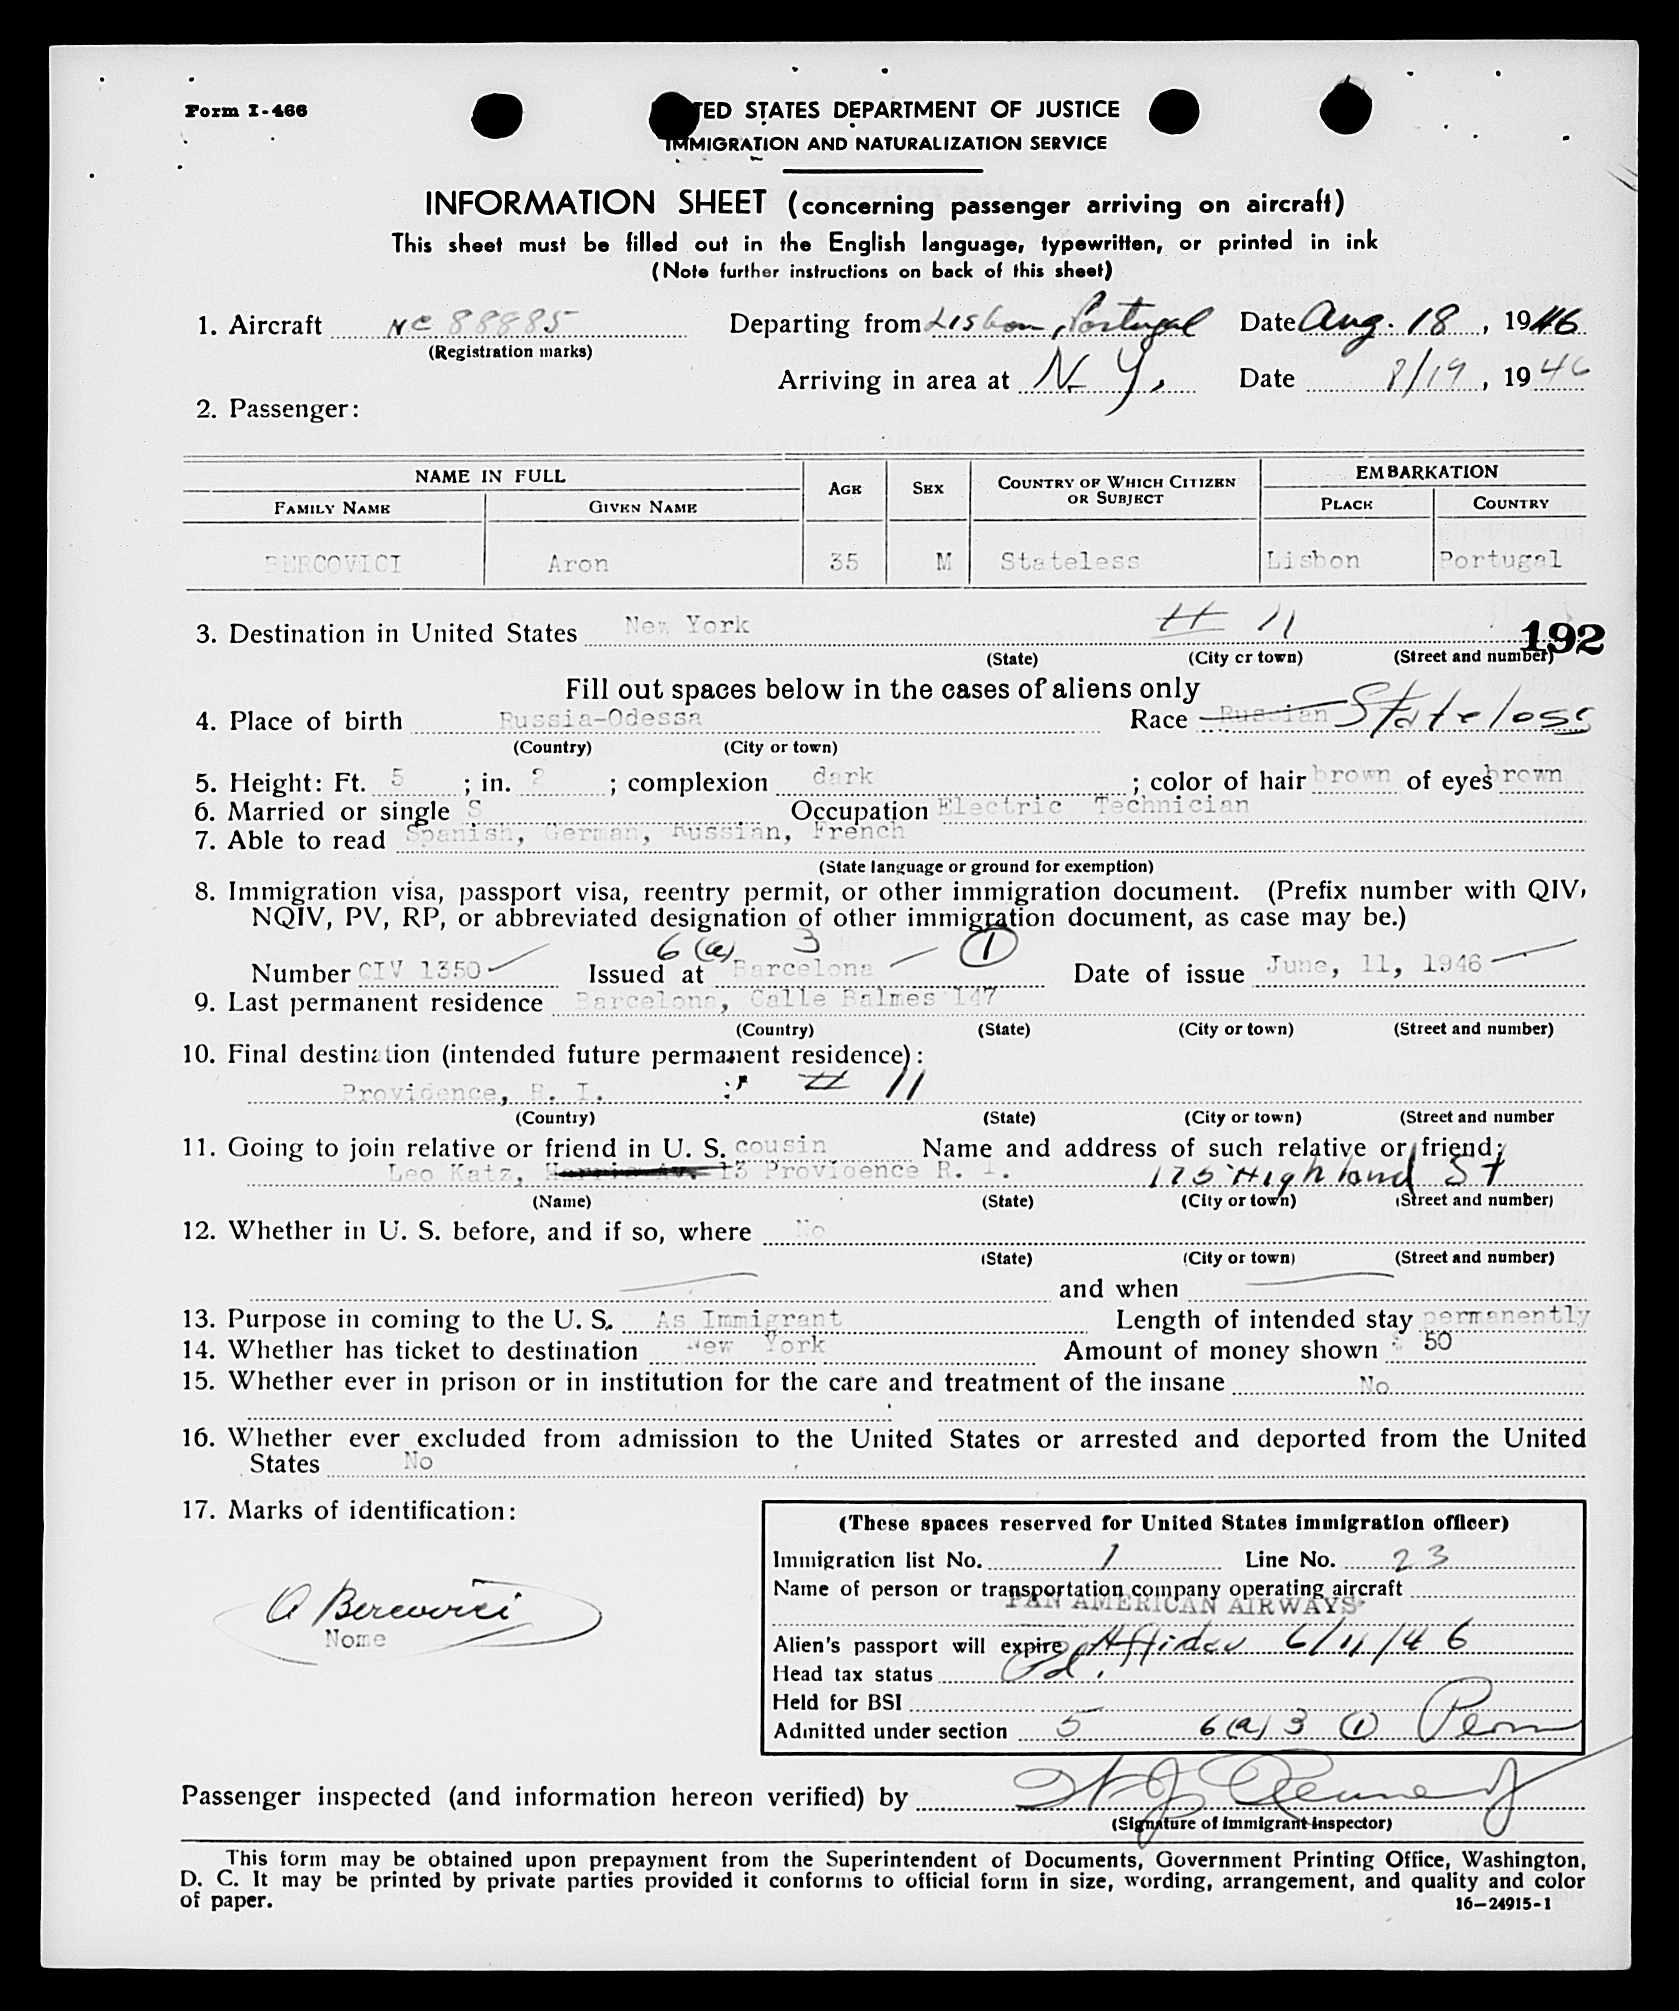 Form I-466
TED STATES DEPARTMENT OF JUSTICE
IMMIGRATION AND NATURALIZATION SERVICE
INFORMATION SHEET (concerning passenger arriving on aircraft)
This sheet must be filled out in the English language, typewritten, or printed in ink
(Note further instructions on back of this sheet)
1. Aircraft NC 88885 Departing from Lisbon, Portugal Date Aug. 18, 1946
(Registration marks)
Arriving in area at N.Y. Date 8/19, 1946
2. Passenger:
NAME IN FULL AGE SEX COUNTRY OF WHICH CITIZEN OR SUBJECT EMBARKATION
FAMILY NAME GIVEN NAME PLACE COUNTRY
BERCOVICI Aron 35 M Stateless Lisbon Portugal
3. Destination in United States New York # 11
192
(State) (City or town) (Street and number)
Fill out spaces below in the cases of aliens only
4. Place of birth Russia-Odessa Race Russian Stateless
(Country) (City or town)
5. Height: Ft. 5 ; in. 2 ; complexion dark ; color of hair brown of eyes brown
6. Married or single S Occupation Electric Technician
7. Able to read Spanish, German, Russian, French
(State language or ground for exemption)
8. Immigration visa, passport visa, reentry permit, or other immigration document. (Prefix number with QIV,
NQIV, PV, RP, or abbreviated designation of other immigration document, as case may be.)
6 (a) 3 1
Number QIV 1350 Issued at Barcelona Date of issue June, 11, 1946
9. Last permanent residence Barcelona, Calle Balmes 147
(Country) (State) (City or town) (Street and number)
10. Final destination (intended future permanent residence):
Providence, R. I. # 11
(Country) (State) (City or town) (Street and number
11. Going to join relative or friend in U. S. cousin Name and address of such relative or friend;
Leo Katz, 13 Providence R. I. 175 Highland St
(Name) (State) (City or town) (Street and number)
12. Whether in U. S. before, and if so, where No
(State) (City or town) (Street and number)
and when
13. Purpose in coming to the U. S. As Immigrant Length of intended stay permanently
14. Whether has ticket to destination New York Amount of money shown $ 50
15. Whether ever in prison or in institution for the care and treatment of the insane No
16. Whether ever excluded from admission to the United States or arrested and deported from the United
States No
17. Marks of identification:
A Bercovici
None
(These spaces reserved for United States immigration officer)
Immigration list No. 1 Line No. 23
Name of person or transportation company operating aircraft
PAN AMERICAN AIRWAYS
Alien's passport will expire Affidav 6/11/46
Head tax status Pd.
Held for BSI
Admitted under section 5 6(a) 3 (1) Perm
Passenger inspected (and information hereon verified) by
(Signature of Immigrant Inspector)
This form may be obtained upon prepayment from the Superintendent of Documents, Government Printing Office, Washington,
D. C. It may be printed by private parties provided it conforms to official form in size, wording, arrangement, and quality and color
of paper.
16—24915-1